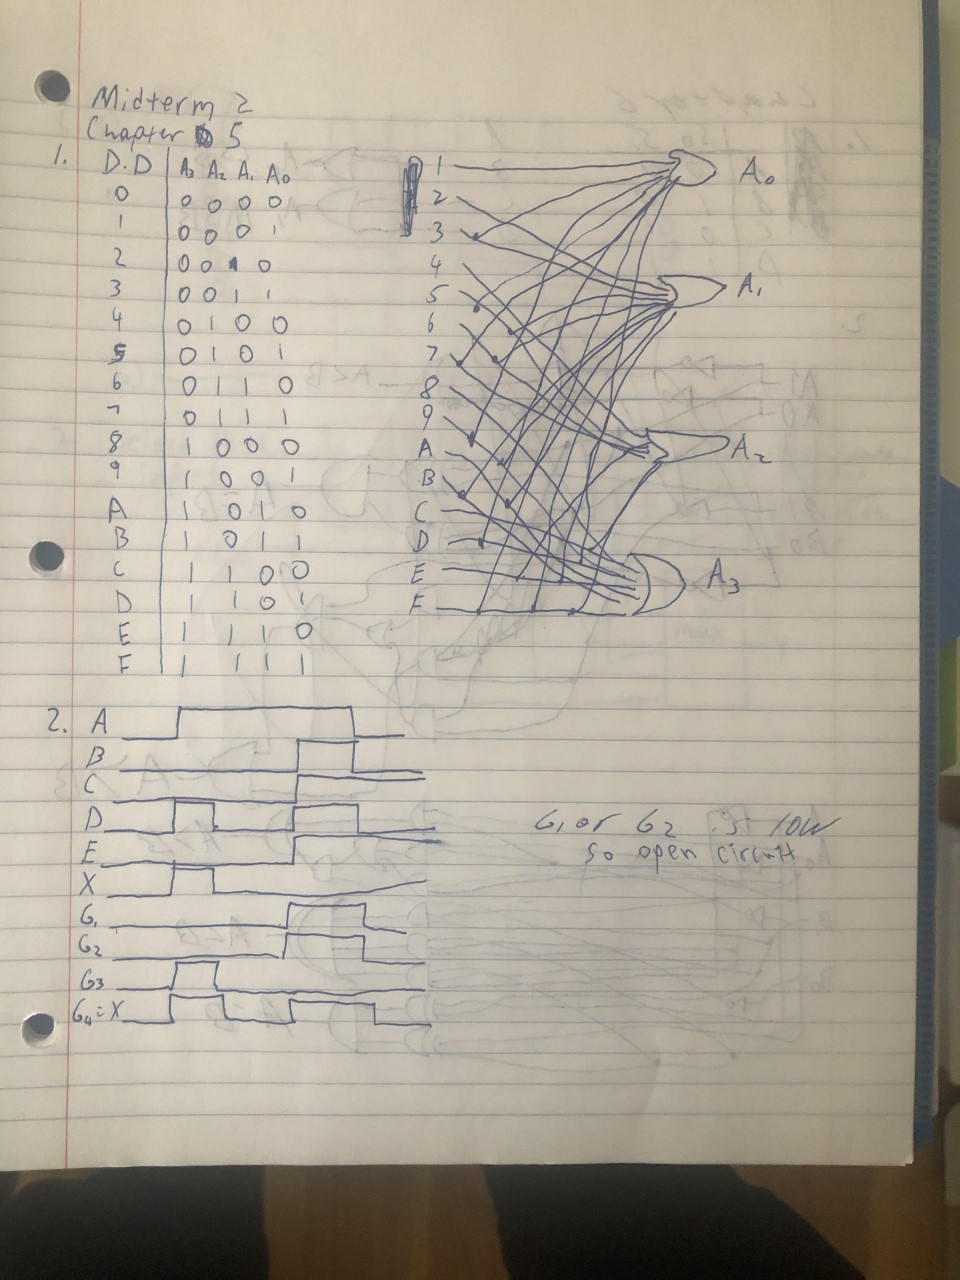 Midterm 2
Chapter 5
1. D.D A3 A2 A1 A0
0 0 0 0 0
1 0 0 0 1
2 0 0 1 0
3 0 0 1 1
4 0 1 0 0
5 0 1 0 1
6 0 1 1 0
7 0 1 1 1
8 1 0 0 0
9 1 0 0 1
A 1 0 1 0
B 1 0 1 1
C 1 1 0 0
D 1 1 0 1
E 1 1 1 0
F 1 1 1 1
1
2
3
4
5
6
7
8
9
A
B
C
D
E
F
A0
A1
A2
A3
2. A
B
C
D
E
X
G1
G2
G3
G4=X
G1 or G2 is low
so open circuit